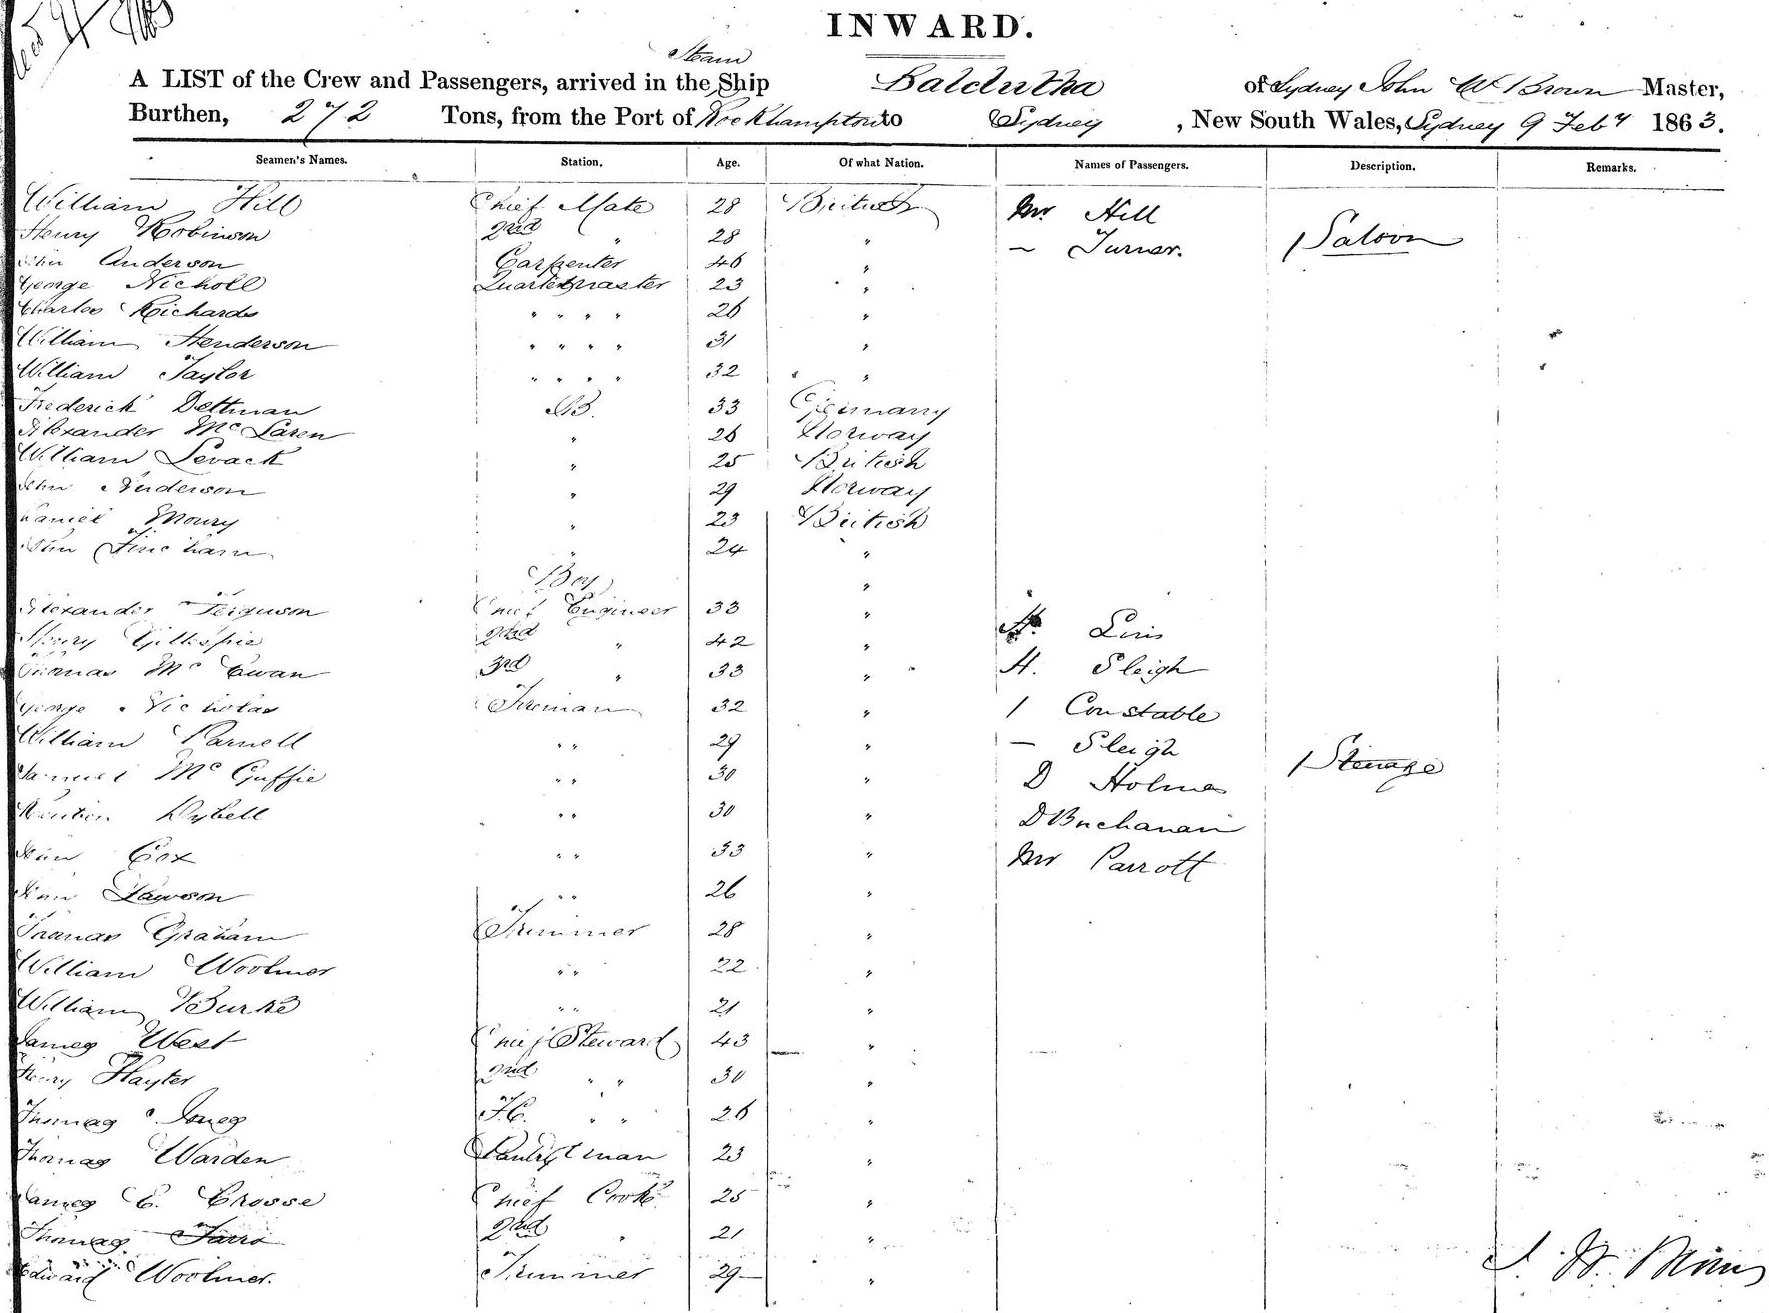 INWARD.
Steam
A LIST of the Crew and Passengers, arrived in the Ship Balclutha of Sydney John W Brown Master,
Burthen, 272 Tons, from the Port of Rockhampton to Sydney, New South Wales, Sydney 9 Feby 1863.
Seamen's Names. Station. Age. Of what Nation. Names of Passengers. Description. Remarks.
William Hill Chief Mate 28 British Mr. Hill
Henry Robinson 2nd " 28 " — Turner. Saloon
John Anderson Carpenter 46 "
George Nicholl Quartermaster 23 "
Charles Richards " " " " 26 "
William Henderson " " " " 31 "
William Taylor " " " " 32 "
Frederick Dettman AB. 33 Germany
Alexander McLaren " 26 Norway
William Levack " 25 British
John Anderson " 29 Norway
Daniel Moury " 23 British
John Fincham " 24 "
Boy "
Alexander Ferguson Chief Engineer 33 " H.
Henry Gillespie 2nd " 42 "
Thomas McEwan 3rd " 33 " H. Sleigh
George Nicholas Fireman 32 " 1 Constable
William Parnell " " 29 " — Sleigh
Samuel McGuffie " " 30 " D Holmes Steerage
Reuben Dybell " " 30 " D Buchanan
John Cox " " 33 " Mr Parrott
John Lawson " " 26 "
Thomas Graham Trimmer 28 "
William Woolmer " " 22 "
William Burke " " 21 "
James West Chief Steward 43 "
Henry Hayter 2nd " " 30 "
Thomas Jones F.C. " " 26 "
Thomas Warden Pantryman 23 "
James C. Crosse Chief Cook 25 "
Thomas Farro 2nd " 21 "
Edward Woolmer. Trimmer 29 "